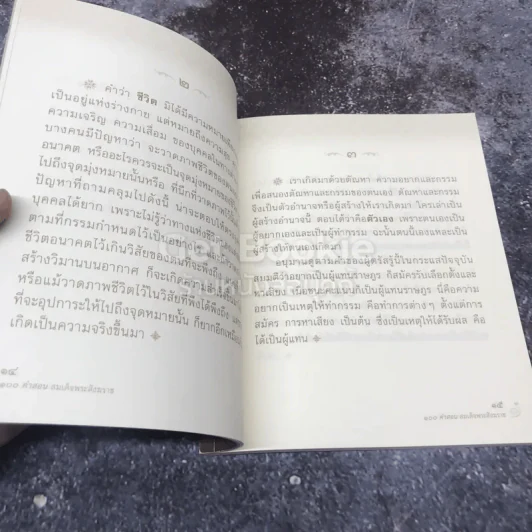 ๒
คำว่า ชีวิต มิได้มีความหมาย
เป็นอยู่แห่งร่างกาย แต่หมายถึงความ
ความเจริญ ความเสื่อม ของบุคคลใน
บางคนมีปัญหาว่า จะวาดภาพชีวิตของตน
อนาคต หรืออะไรควรจะเป็นจุดมุ่งหมายของ
ไปถึงจุดมุ่งหมายนั้นหรือ ที่นึกที่วาดภาพไว้
ปัญหาที่ถามคลุมไปดังนี้ น่าจะตอบให้ตรง
บุคคลได้ยาก เพราะไม่รู้ว่าทางแห่งชีวิต
ตามที่กรรมกำหนดไว้เป็นอย่างไร
ชีวิตอนาคตไว้เกินวิสัยของตนที่จะพึงถึง
สร้างวิมานบนอากาศ ก็จะเกิด
หรือแม้วาดภาพชีวิตไว้ในวิสัยที่พึงได้พึงถึง แต่
ที่จะอุปการะให้ไปถึงจุดหมายนั้น ก็ยากอีกเหมือน
เกิดเป็นความจริงขึ้นมา
๑๔
๑๐๐ คำสอน สมเด็จพระสังฆราช
๓
เราเกิดมาด้วยตัณหา ความอยากและกรรม
เพื่อสนองตัณหาและกรรมของตนเอง ตัณหาและกรรม
จึงเป็นตัวอำนาจหรือผู้สร้างให้เราเกิดมา ใครเล่าเป็น
ผู้สร้างอำนาจนี้ ตอบได้ว่าคือตัวเอง เพราะตนเองเป็น
ผู้อยากเองและเป็นผู้ทำกรรม ฉะนั้นตนนี้เองแหละเป็น
ผู้สร้างให้ตนเองเกิดมา
อุปมาแต่ตามตัวของผู้ตรัสรู้นี้ในกระแสปัจจุบัน
สมมติว่าอยากเป็นผู้แทนราษฎร ก็สมัครรับเลือกตั้งและ
หาเสียง เมื่อชนะคะแนนก็เป็นผู้แทนราษฎร นี่คือความ
อยากเป็นเหตุให้ทำกรรม คือทำการต่างๆ ตั้งแต่การ
สมัคร การหาเสียง เป็นต้น ซึ่งเป็นเหตุให้ได้รับผล คือ
ได้เป็นผู้แทน
๑๕
๑๐๐ คำสอน สมเด็จพระสังฆราช